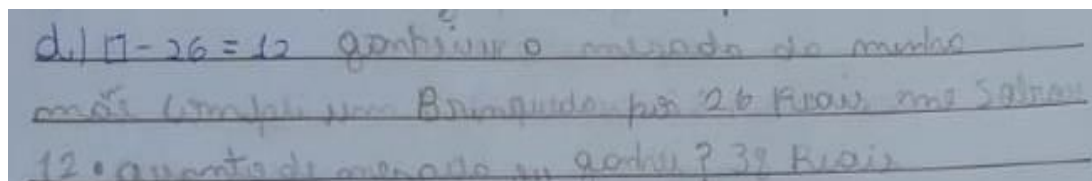 d.) □ - 26 = 12 o mesada da minha
mãe comprei um Brinquedo por 26 Reais me Sobrou
12. quanto de mesada eu ganhei? 38 Reais